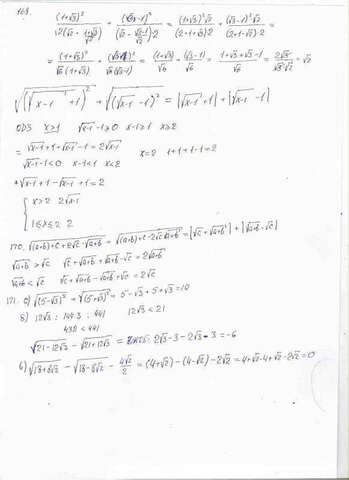 168.
(1+√3)² / √2(√2 - (1+√3)/√2) + (√3-1)² / (√2 - (√3-1)/√2)·2 = (1+√3)²√2 / (2+1+√3)·2 + (√3-1)²√2 / (2+1-√3)·2 =
= (1+√3)² / √6(1+√3) + (√3-1)² / √6(√3-1) = (1+√3)/√6 + (√3-1)/√6 = (1+√3+√3-1)/√6 = 2√3/√3·√2 = √2
√((√x-1 + 1)²) + √((√x-1 - 1)²) = |√x-1 + 1| + |√x-1 - 1|
ОДЗ x≥1 √x-1 - 1≥0 x-1≥1 x≥2
= √x-1 + 1 + √x-1 - 1 = 2√x-1 x=2 1+1+1-1=2
√x-1 - 1<0 x-1<1 x<2
* √x-1 + 1 - √x-1 + 1 = 2
{ x≥2 2√x-1
1≤x≤2 2
170. √(a+b)+c+2√c·√a+b - √(a+b)+c-2√c√a+b = |√c+√a+b| + |√a+b-√c|
√a+b > √c √c+√a+b+√a+b-√c = 2√a+b
√a+b < √c √c+√a+b-√a+b+√c = 2√c
171. а) √(5-√3)² + √(5+√3)² = 5-√3+5+√3 = 10
8) 12√3 : 144·3 : 441 12√3 < 21
432 < 441
√21-12√3 - √21+12√3 = 2√3-3-2√3-3 = -6
б) √18+8√2 - √18-8√2 - 4√2/2 = (4+√2)-(4-√2)-2√2 = 4+√2-4+√2-2√2 = 0